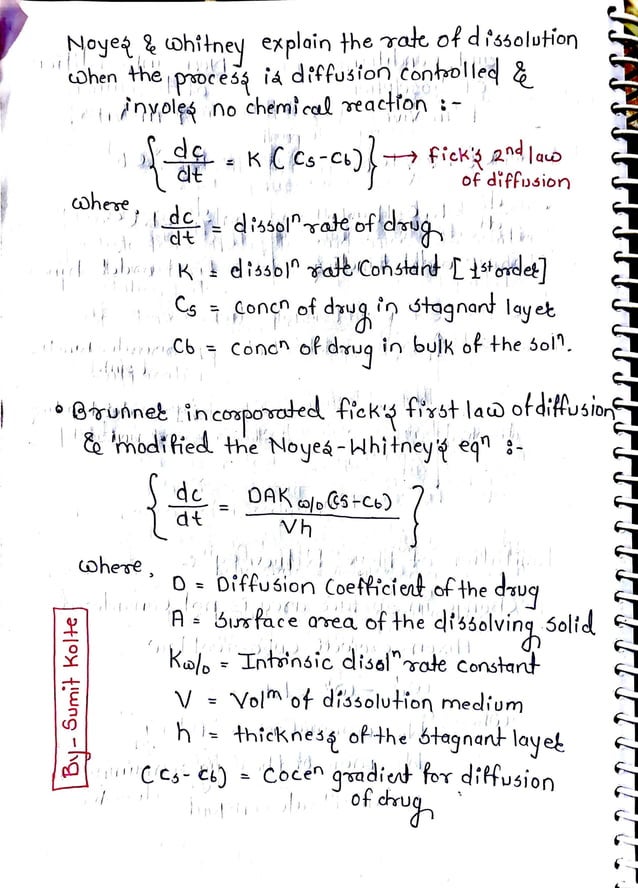 Noyes & Whitney explain the rate of dissolution
when the process is diffusion controlled &
involes no chemical reaction :-
{ dc/dt = K (Cs - Cb) } → fick's 2nd law
of diffusion
where, dc/dt = dissolⁿ rate of drug
K = dissolⁿ rate Constant [1st order]
Cs = Concⁿ of drug in stagnant layer
Cb = Concⁿ of drug in bulk of the solⁿ.
• Brunner incorporated fick's first law of diffusion
& modified the Noyes-Whitney's eqⁿ :-
{ dc/dt = DAK w/o (Cs - Cb) / Vh }
where,
D = Diffusion Coefficient of the drug
A = Surface area of the dissolving solid
Kw/o = Intrinsic disolⁿ rate constant
V = Volᵐ of dissolution medium
h = thickness of the stagnant layer
(Cs - Cb) = Cocen gradient for diffusion
of drug
By - Sumit Kolte